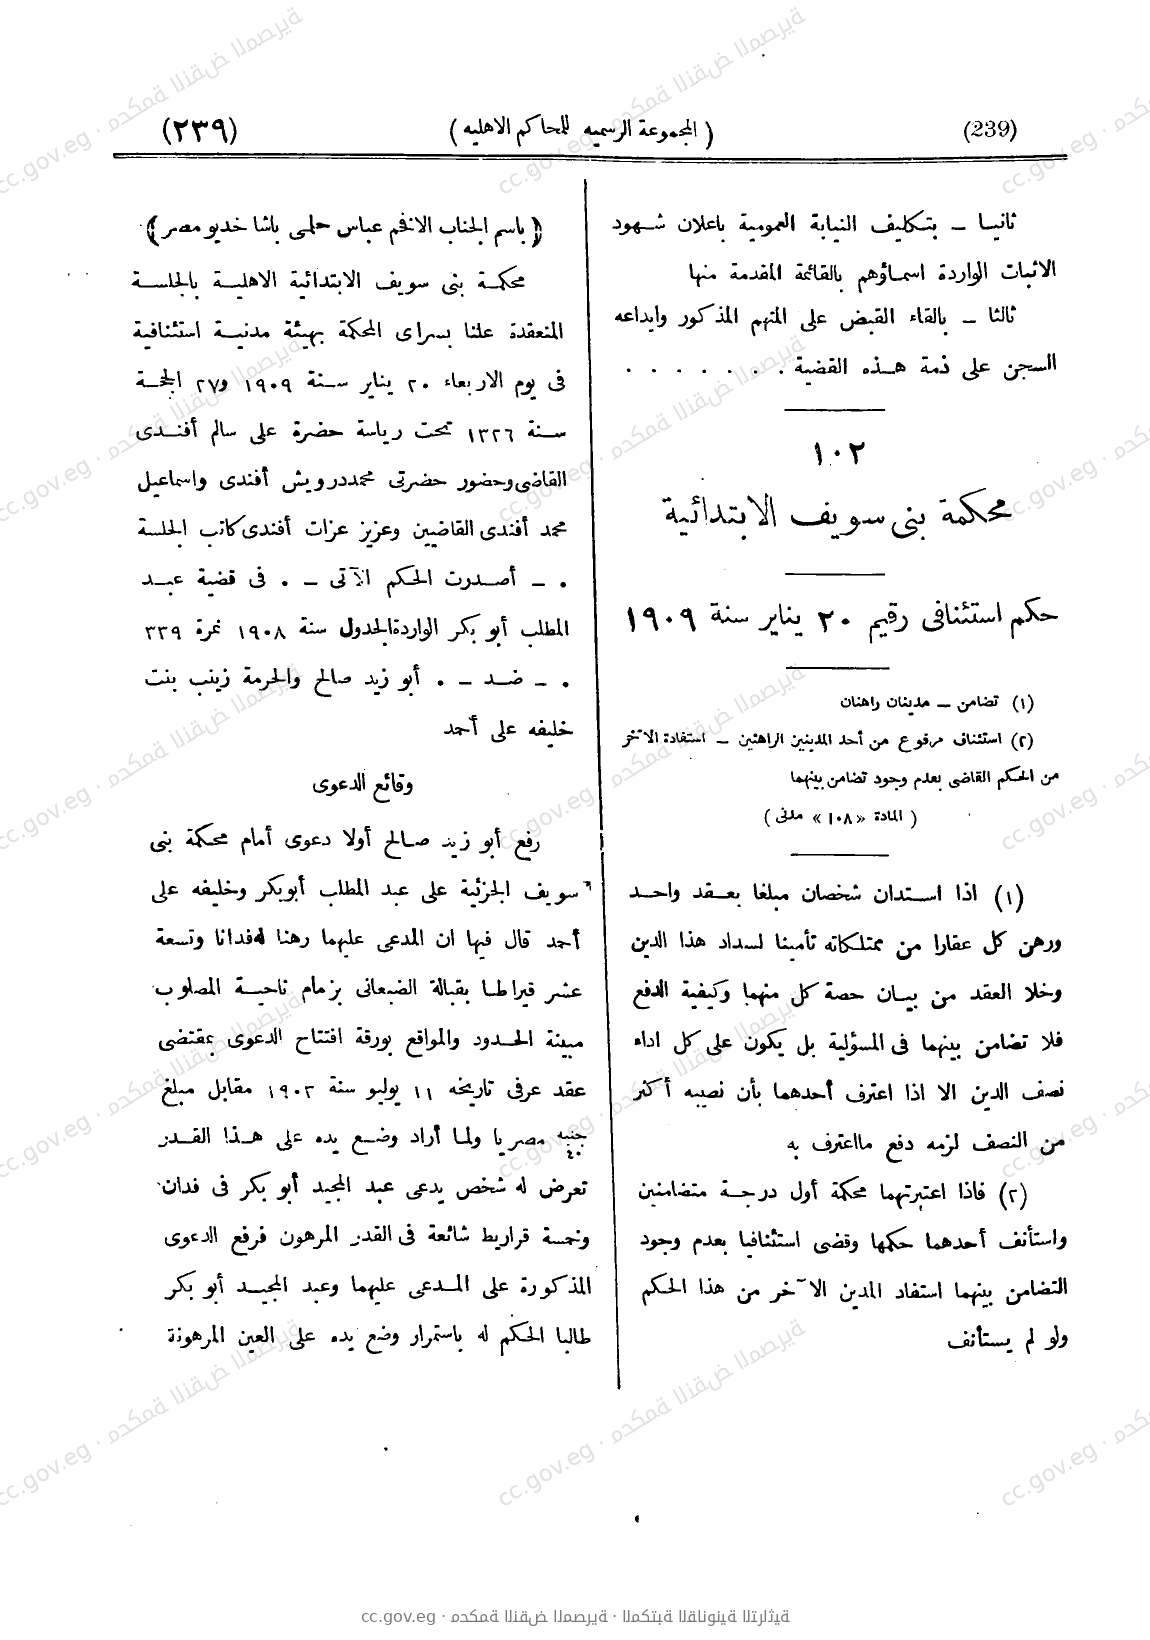 (239) ( المجموعة الرسميه للمحاكم الاهليه ) (٢٣٩)
ثانيا – بتكليف النيابة العمومية باعلان شهود
الاثبات الواردة اسماؤهم بالقائمة المقدمة منها
ثالثا – بالقاء القبض على المتهم المذكور وايداعه
السجن على ذمة هذه القضية . . . . . . .
١٠٢
محكمة بنى سويف الابتدائية
حكم استئنافى رقيم ٢٠ يناير سنة ١٩٠٩
(١) تضامن – مدينان راهنان
(٢) استئناف مرفوع من أحد المدينين الراهنين – استفادة الآخر
من الحكم القاضى بعدم وجود تضامن بينهما
( المادة «١٠٨» مدنى )
(١) اذا استدان شخصان مبلغا بعقد واحد
ورهن كل عقارا من ممتلكاته تأمينا لسداد هذا الدين
وخلا العقد من بيان حصة كل منهما وكيفية الدفع
فلا تضامن بينهما فى المسؤلية بل يكون على كل اداء
نصف الدين الا اذا اعترف أحدهما بأن نصيبه أكثر
من النصف لزمه دفع مااعترف به
(٢) فاذا اعتبرتهما محكمة أول درجة متضامنين
واستأنف أحدهما حكمها وقضى استئنافيا بعدم وجود
التضامن بينهما استفاد المدين الآخر من هذا الحكم
ولو لم يستأنف
﴿ باسم الجناب الافخم عباس حلمى باشا خديو مصر ﴾
محكمة بنى سويف الابتدائية الاهلية بالجلسة
المنعقدة علنا بسراى المحكمة بهيئة مدنية استئنافية
فى يوم الاربعاء ٢٠ يناير سنة ١٩٠٩ و٢٧ الحجة
سنة ١٣٢٦ تحت رياسة حضرة على سالم أفندى
القاضى وحضور حضرتى محمد درويش أفندى واسماعيل
محمد أفندى القاضيين وعزيز عزات أفندى كاتب الجلسة
. – أصدرت الحكم الآتى – . فى قضية عبد
المطلب أبو بكر الواردة الجدول سنة ١٩٠٨ نمرة ٣٣٩
. – ضد – . أبو زيد صالح والحرمة زينب بنت
خليفه على أحمد
وقائع الدعوى
رفع أبو زيد صالح أولا دعوى أمام محكمة بنى
سويف الجزئية على عبد المطلب أبو بكر وخليفه على
أحمد قال فيها ان المدعى عليهما رهنا له فدانا وتسعة
عشر قيراطا بقبالة الضبعانى بزمام ناحية المصلوب
مبينة الحدود والمواقع بورقة افتتاح الدعوى بمقتضى
عقد عرفى تاريخه ١١ يوليو سنة ١٩٠٣ مقابل مبلغ
٤٠ جنيه مصريا ولما أراد وضع يده على هذا القدر
تعرض له شخص يدعى عبد المجيد أبو بكر فى فدان
وخمسة قراريط شائعة فى القدر المرهون فرفع الدعوى
المذكورة على المدعى عليهما وعبد المجيد أبو بكر
طالبا الحكم له باستمرار وضع يده على العين المرهونة
cc.gov.eg · محكمة النقض المصرية · المكتبة القانونية التراثية